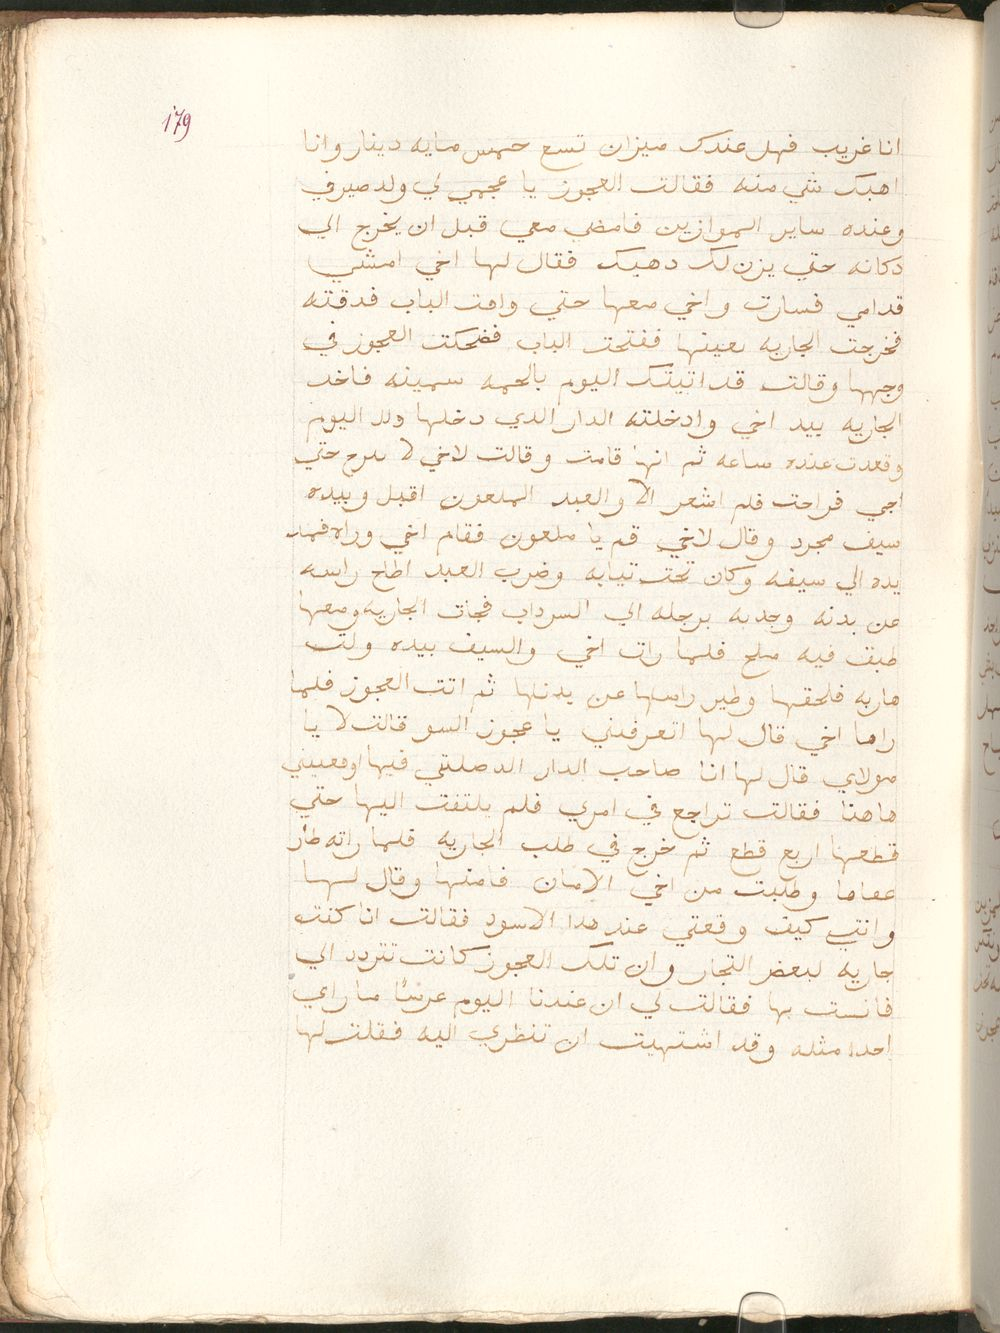 179
انا غريب فهل عندك ميزان تسع خمس مايه دينار وانا
اهبك شي منه فقالت العجوز يا عجمي لي ولد صيرفي
وعنده ساير الموازين فامضي معي قبل ان يخرج الي
دكانه حتي يزن لك دهبك فقال لها اخي امشي
قدامي فسارت واخي معها حتي وافت الباب فدقته
فخرجت الجاريه بعينها ففتحت الباب فضحكت العجوز في
وجهها وقالت قد اتيتك اليوم بالحمه سمينه فاخد
الجاريه بيد اخي وادخلته الدار الدي دخلها ولد اليوم
وقعدت عنده ساعه ثم انها قامت وقالت لاخي لا تبرح حتي
اجي فراحت فلم اشعر الا والعبد الملعون اقبل وبيده
سيف مجرد وقال لاخي قم يا ملعون فقام اخي وراه فمد
يده الي سيفه وكان تحت تيابه وضرب العبد اطاح راسه
عن بدنه وجدبه برجله الي السرداب فجات الجاريه ومعها
طبق فيه ملح فلما رات اخي والسيف بيده ولت
هاربه فلحقها وطير راسها عن بدنها ثم اتت العجوز فلما
راها اخي قال لها اتعرفني يا عجوز السو قالت لا يا
مولاي قال لها انا صاحب الدار الدي صلتي فيها اوقعتيني
هاهنا فقالت تراجع في امري فلم يلتفت اليها حتي
قطعها اربع قطع ثم خرج في طلب الجاريه فلما راته طار
عقلها وطلبت من اخي الامان فامنها وقال لها
وانتي كيف وقعتي عند هدا الاسود فقالت انا كنت
جاريه لبعض التجار وان تلك العجوز كانت تتردد الي
فانست بها فقالت لي ان عندنا اليوم عرسًا ما راي
احد مثله وقد اشتهيت ان تنظري اليه فقلت لها